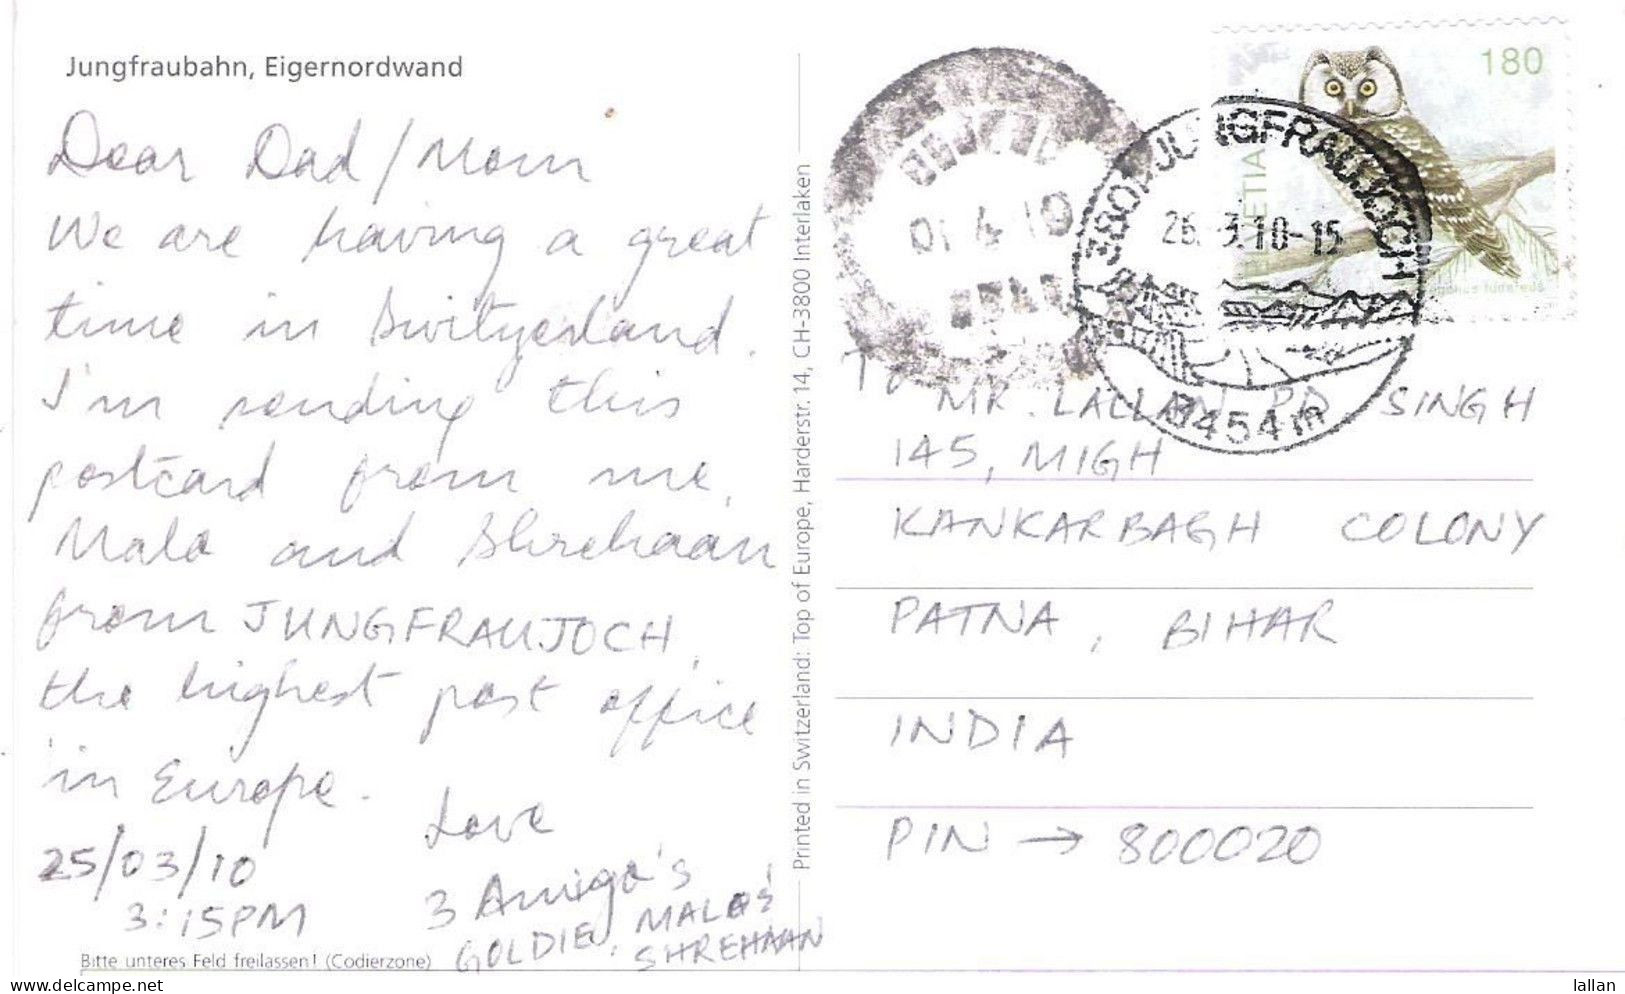 Jungfraubahn, Eigernordwand
Dear Dad / Mom
We are having a great
time in Switzerland.
I'm sending this
postcard from me,
Mala and Shrehaan
from JUNGFRAUJOCH,
the highest post office
in Europe.
25/03/10
3:15PM
Love
3 Amigo's
GOLDIE, MALA &
SHREHAAN
Bitte unteres Feld freilassen! (Codierzone)
Printed in Switzerland: Top of Europe, Harderstr. 14, CH-3800 Interlaken
01 4 10
3801 JUNGFRAUJOCH
26.-3.10-15
3454m
180
HELVETIA
To
MR. LALLAN PD. SINGH
145, MIGH
KANKARBAGH COLONY
PATNA, BIHAR
INDIA
PIN → 800020
lallan